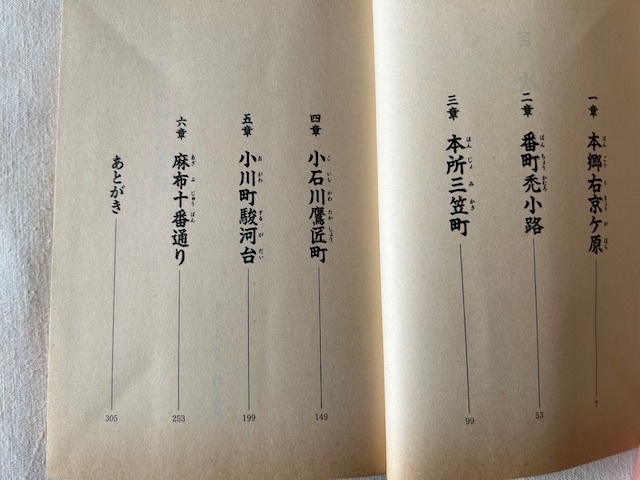 一章 本郷右京ケ原 7
二章 番町禿小路 53
三章 本所三笠町 99
四章 小石川鷹匠町 149
五章 小川町駿河台 199
六章 麻布十番通り 253
あとがき 305